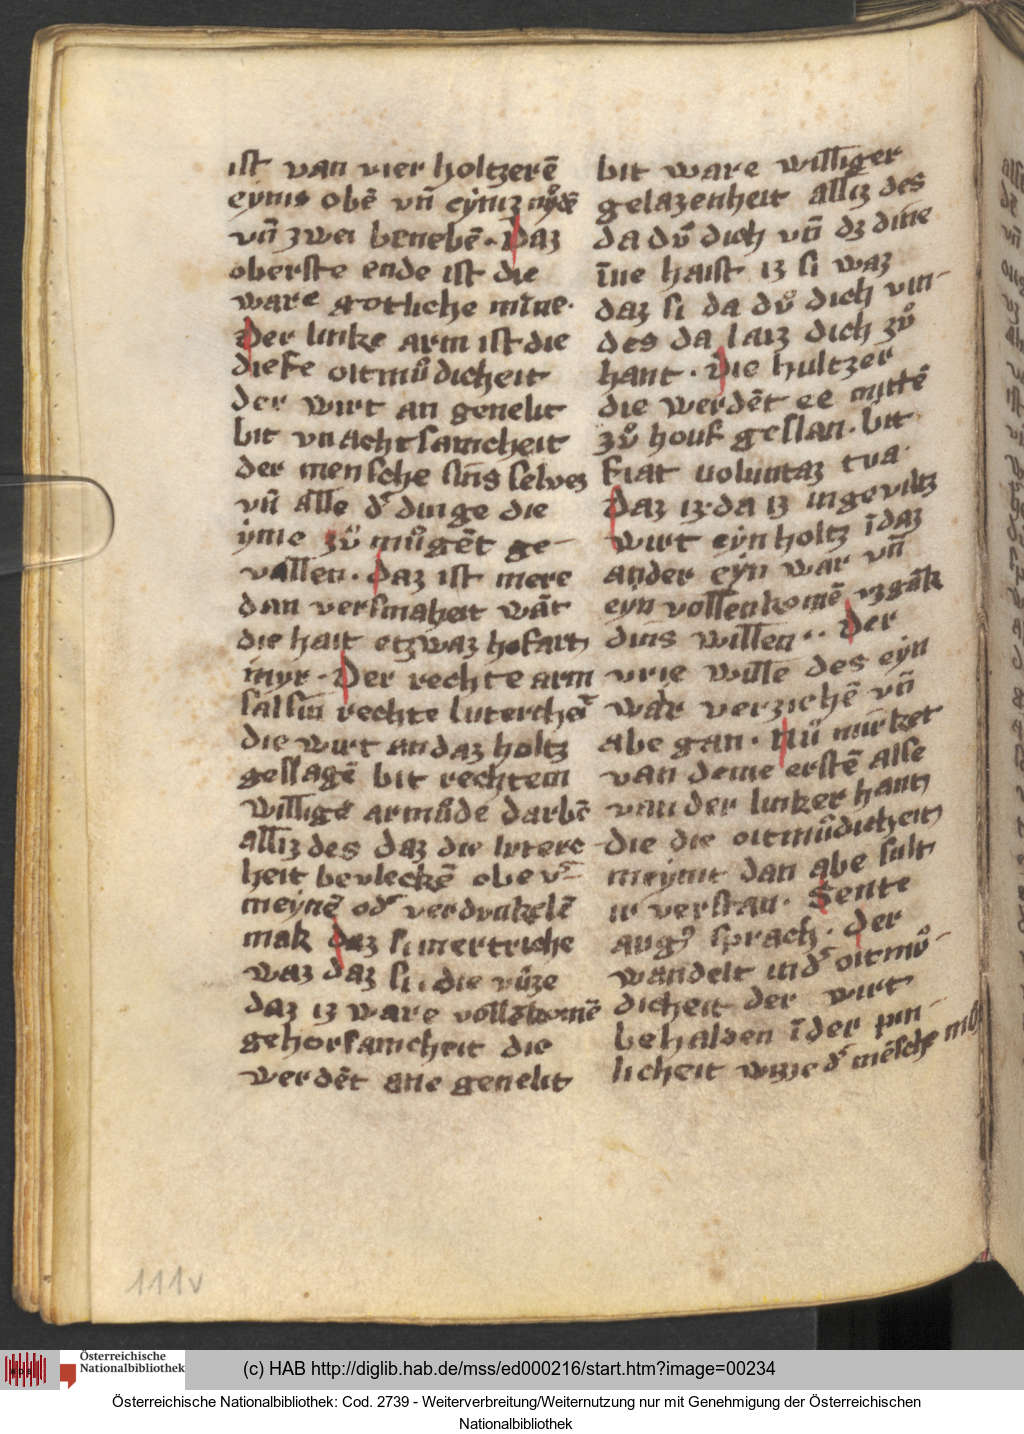 ist van vier holtzerē
eynis obē vn̄ eyniz nydē
vn̄ zwei benebē. Daz
oberste ende ist die
ware gotliche mīne.
Der linke arm ist die
diefe oitmůdicheit
der wirt an genekit
bit vnachtsamcheit
der mensche sīns selves
vn̄ alle d' dinge die
ime zů můgēt ge-
vallen. Daz ist mere
dan versmaheit wāt
die hait etzwaz hofart
inyr. Der rechte arm
sal sin rechte luterchei͛t
die wirt an daz holtz
geslagē bit rechtem
willigē armůde darbē
alliz des daz die lutere
heit bevleckē obe v͛-
meynē od' verdunkelē
mak daz si mertriche
waz daz si. die vůze
daz iz ware vollēkomē
gehorsamcheit die
werdēt ane genekit
bit ware williger
gelazenheit alliz des
da dů dich vn̄ dz dine
īne haist iz si waz
daz si da dů dich vin-
des da laiz dich zů
hant. Die hultzer
die werdēt ee mittē
zů houf geslan. bit
fiat uoluntaz tua.
Daz iz. da iz ingeviltz
wirt eyn holtz īdaz
ander eyn war vn̄
eyn vollenkomē vzgāk
dins willen.. Der
vrie wille des eyn
war verzichē vn̄
abe gan. Nů mirket
van deme erstē alse
van der linker hant
die die oitmůdicheit
meynit dan abe sult
ir verstan. Sente
aug9 sprach. der
wandelt ind' oitmů-
dicheit der wirt
behalden īder pin-
licheit wize d' mēsche
111v
Österreichische
Nationalbibliothek
(c) HAB http://diglib.hab.de/mss/ed000216/start.htm?image=00234
Österreichische Nationalbibliothek: Cod. 2739 - Weiterverbreitung/Weiternutzung nur mit Genehmigung der Österreichischen
Nationalbibliothek